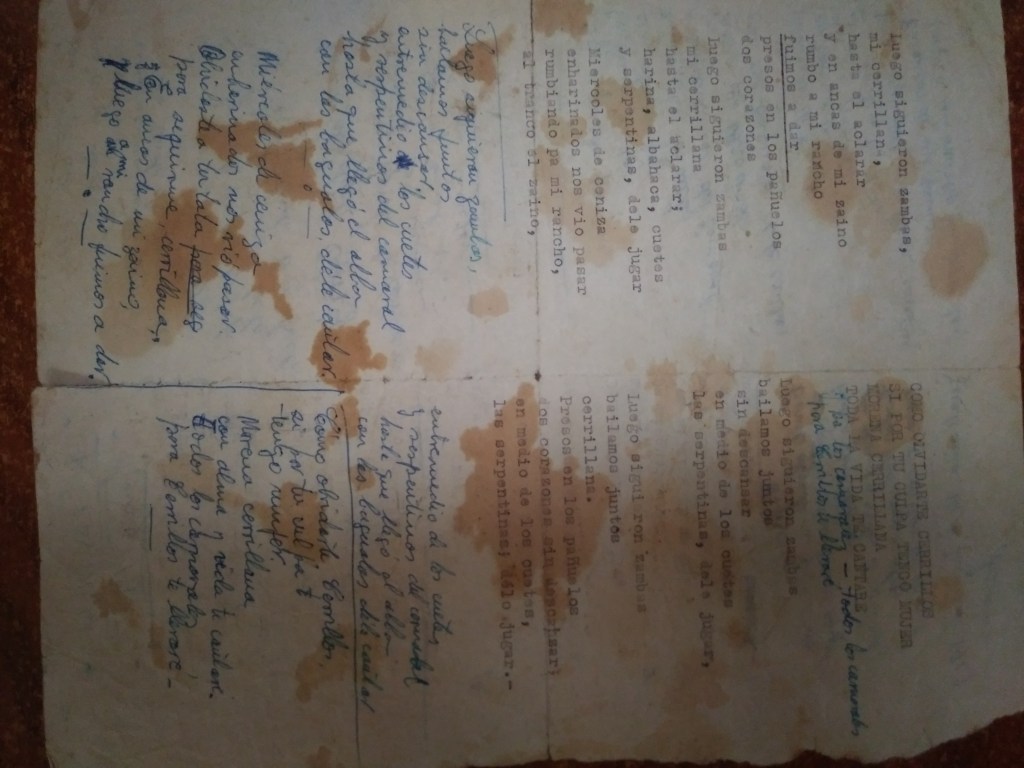 Luego siguieron zambas,
mi cerrillan.,
hasta el aolarar
y en ancas de mi zaino
rumbo a mi rancho
fuimos a dar
presos en los pañuelos
dos corazones
luego siguieron zambas
mi cerrillana
hasta el aclarar;
harina, albahaca, cuetes
y serpentinas, dele jugar
Mierocles de ceniza
enharinados nos vio pasar
rumbiando pa mi rancho,
al tranco el zaino,
Luego siguieron juntos,
bailamos juntos
sin descansar,
entremedio los cuetes
y serpentinas del carnaval
hasta que llegó el albor
con las baguales, dele cantar.
Miércoles de ceniza
enharinados nos vió pasar.
Olvidaste tu tala
para seguirme, cerrillana,
En ancas de mi zaino,
y luego a mi rancho fuimos a dar.
COMO OLVIDARTE CERRILLOS
SI POR TU CULPA TENGO MUJER
MORENA CERRILLANA
TODA LA VIDA TE CANTARE
y pa los carnavales - todos los carnavales
para Cerrillos te llevaré
Luego siguieron zambas
bailamos juntos
sin desoansar
en medio de los cuetes
las serpentinas, dele jugar,
Luego sigui ron zambas
bailamos juntos
cerrillana.
Presos en los pañuelos
dos corazones sin descansar;
en medio de los cuetes,
las serpentinas, délo jugar.-
entremedio de los cuetes
y serpentinas del carnaval
hasta que llegó el albor
con las baguales dele cantar
Como olvidarte Cerrillos,
si por tu culpa
tengo mujer
Morena cerrillana
con alma y vida te cantaré.
todos los carnavales
para Cerrillos te llevaré -